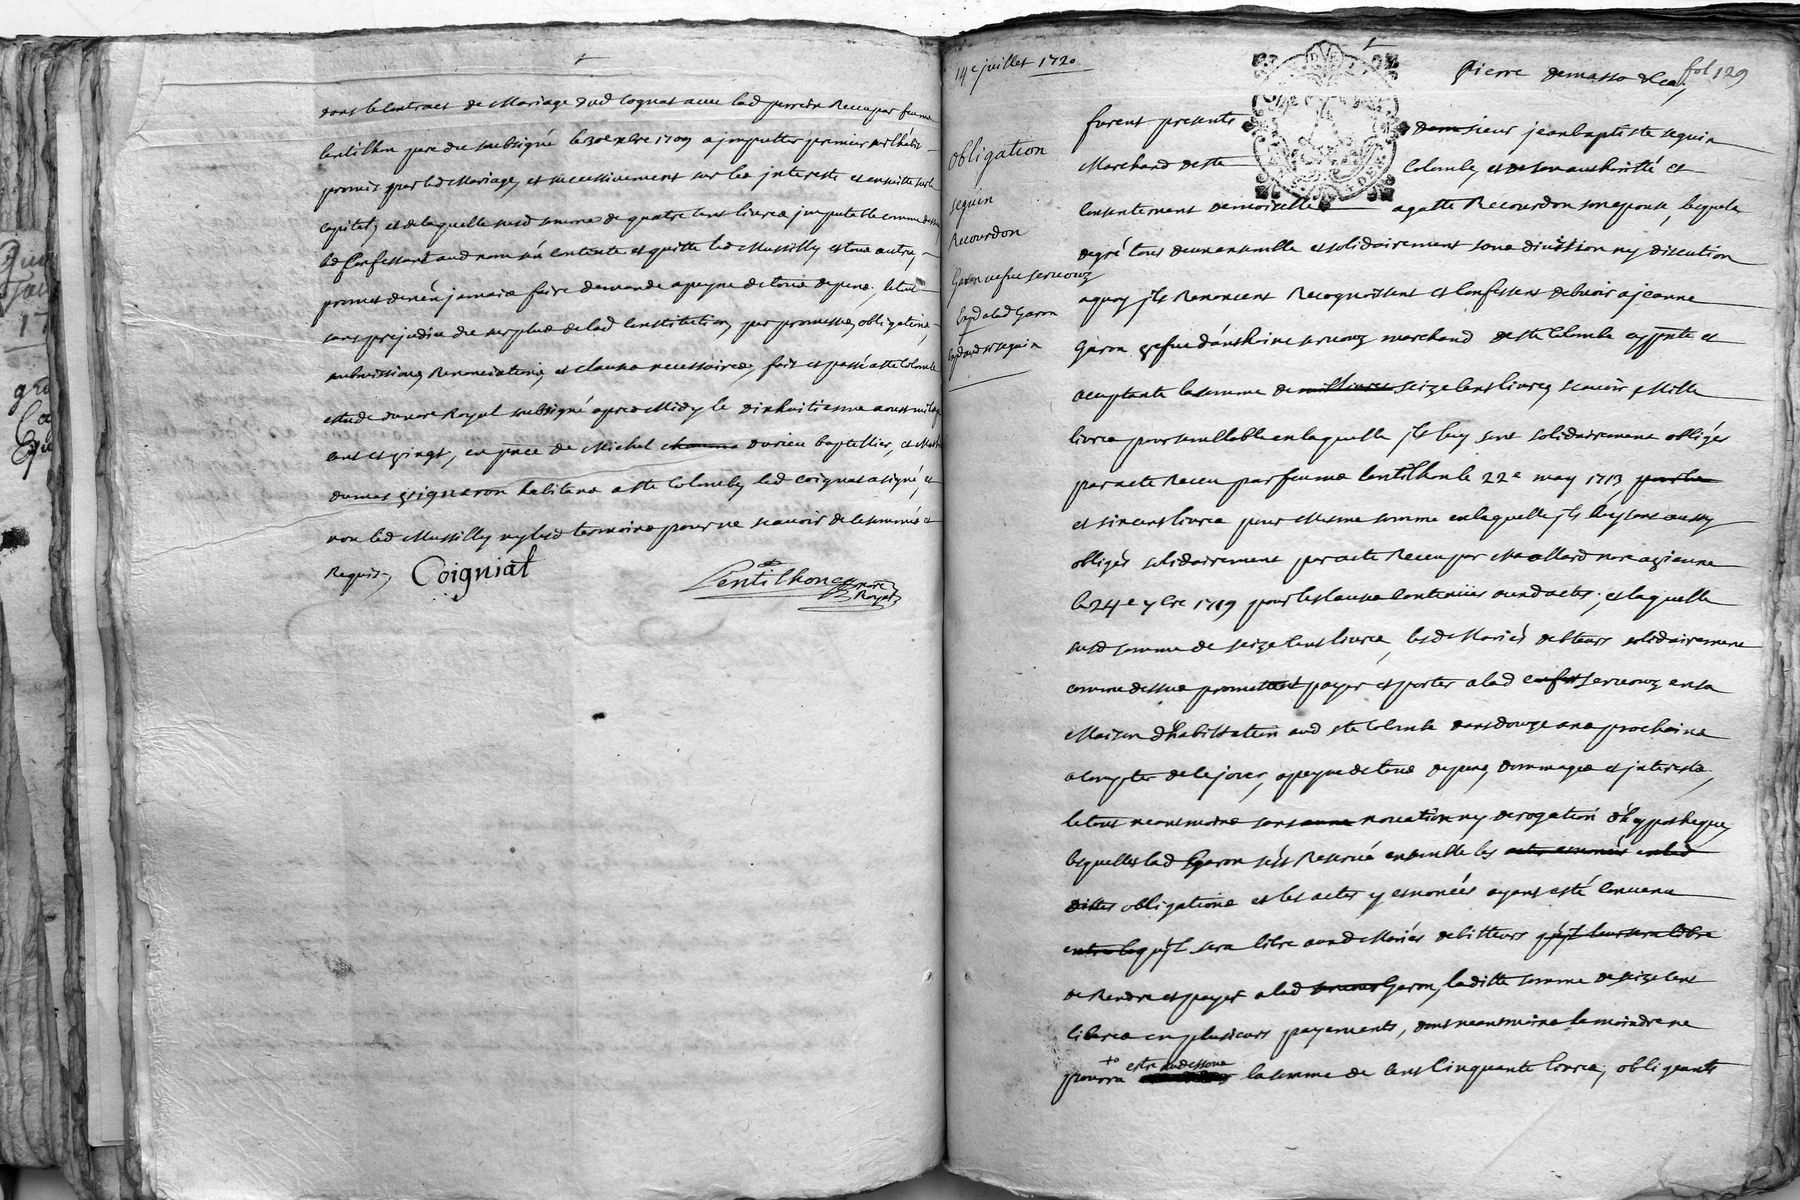 dans le Contract de Mariage dud Cognat avec lad perrein Receu par feu me
Lentilhon pere du soubsigné le 30e xbre 1709 a jmputter premier
promis par led Mariage, et successivement sur les jnterests et ensuitte sur le
capital, et de laquelle susd somme de quatre cent livres jmputable comme dessus
led Confessant aud nom s'en contente et quitte led Mussilly et tous autres,
promet de n'en jamais faire demande a peyne de tous depens, le tout
sans prejudice du surplus de lad Constitution, par promesses, obligations,
submissions, Renonciations, et clauses necessaires, fait et passé a ste Colombe
estude du nore Royal soubsigné apres Midy le dixhuitieme aoust mil sept
cent et vingt, en pnce de Michel durieu baptellier, et
dumas vigneron habitans a ste Colombe, led coignat a signé, et
non led Mussilly ny lesd tesmoins pour ne scavoir de ce sommés et
Requis,
Coigniat
Lentilhon nore Royal
14e juillet 1720
Pierre demasso &ca,
fol 129
obligation
seguin
Recourdon
Garon vefve servouz
Expd a lad Garon
Expd aud sr seguin
furent presents sieur jean baptiste seguin
Marchand de ste Colombe, et de son authorité et
Consentement demoiselle agatte Recourdon son epouse, lesquels
de gré tous deux ensemble et solidairement sans division ny discution
a quoy jls Renoncent Recognoissent et Confessent debvoir a jeanne
Garon vefve d'anthoine servouz marchand de ste Colombe cy pnte et
acceptante la somme de mil livres seize cent livres, scavoir Mille
livres pour semblable en laquelle jls luy sont solidairement obligés
par acte Receu par feu me Lentilhon le 22e may 1713, pour les
et six cent livres pour mesme somme en laquelle jls luy sont aussy
obligés solidairement par acte Receu par me allard nore a vienne
le 24e 1719 pour les causes Contenües ausd actes, et laquelle
susd somme de seize cent livres, lesd Mariés debteurs solidairement
comme dessus promettent payer et porter a lad servouz en sa
Maison d'habittation aud ste Colombe dans douze ans prochains
a Compter de ce jour, a peyne de tous depens, dommages et jnterests,
le tout neantmoins sans novation ny derogation d'hyppotheques
lesquelles lad Garon s'est Reservé ensemble les actes
dittes obligations et les actes y esnoncés ayant esté Convenu
entre qu'jl sera libre ausd Mariés debitteurs qu'jl leur sera libre
de Rendre et payer a lad Garon, laditte somme de seize cent
livres en plusieurs payements, dont neantmoins le moindre ne
pourra estre au dessous la somme de cent Cinquante livres, obligeants